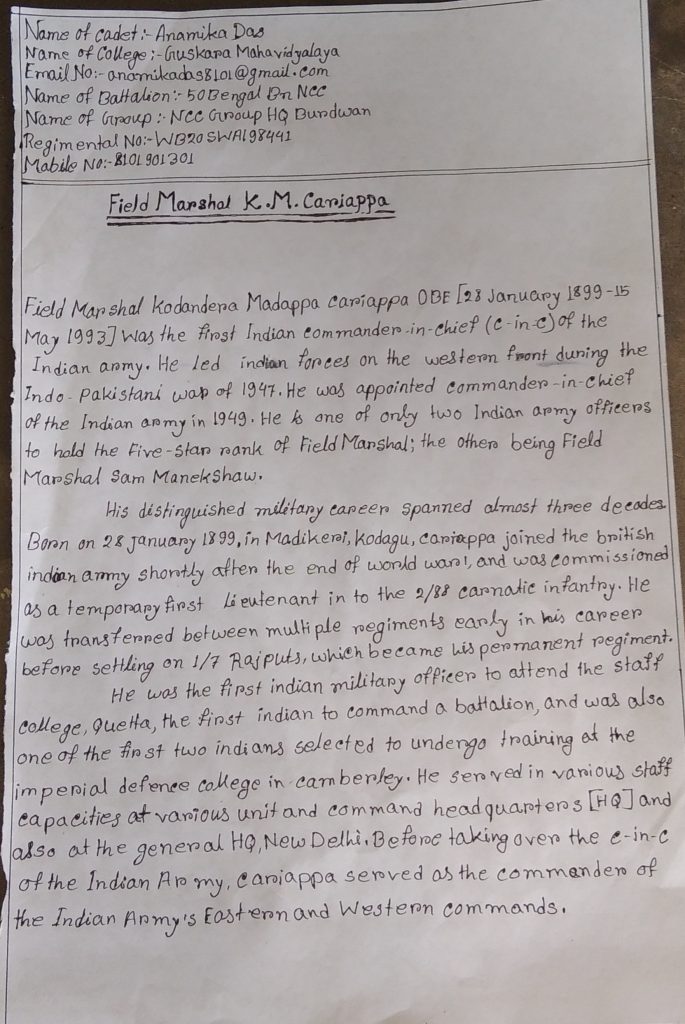 Name of cadet:- Anamika Das
Name of College:- Guskara Mahavidyalaya
Email No:- anamikadas8101@gmail.com
Name of Battalion:- 50 Bengal Bn NCC
Name of Group:- NCC Group HQ Burdwan
Regimental No:- WB20SWA198441
Mabile No:- 8101901301
Field Marshal K.M. Cariappa
Field Marshal Kodandera Madappa Cariappa OBE [28 January 1899-15
May 1993] Was the first Indian commander-in-chief (c-in-c) of the
Indian army. He led indian forces on the western front during the
Indo-Pakistani war of 1947. He was appointed commander-in-chief
of the Indian army in 1949. He is one of only two Indian army officers
to hold the Five-star rank of Field Marshal; the other being Field
Marshal Sam Manekshaw.
His distinguished military career spanned almost three decades.
Born on 28 January 1899, in Madikeri, Kodagu, cariappa joined the british
indian army shortly after the end of world war1, and was commissioned
as a temporary first Lieutenant in to the 2/88 carnatic infantry. He
was transferred between multiple regiments early in his career
before settling on 1/7 Rajputs, which became his permanent regiment.
He was the first indian military officer to attend the staff
college, Quetta, the first indian to command a battalion, and was also
one of the first two indians selected to undergo training at the
imperial defence college in camberley. He served in various staff
capacities at various unit and command headquarters [HQ] and
also at the general HQ, New Delhi. Before taking over the c-in-c
of the Indian Army, cariappa served as the commander of
the Indian Army's Eastern and Western commands.